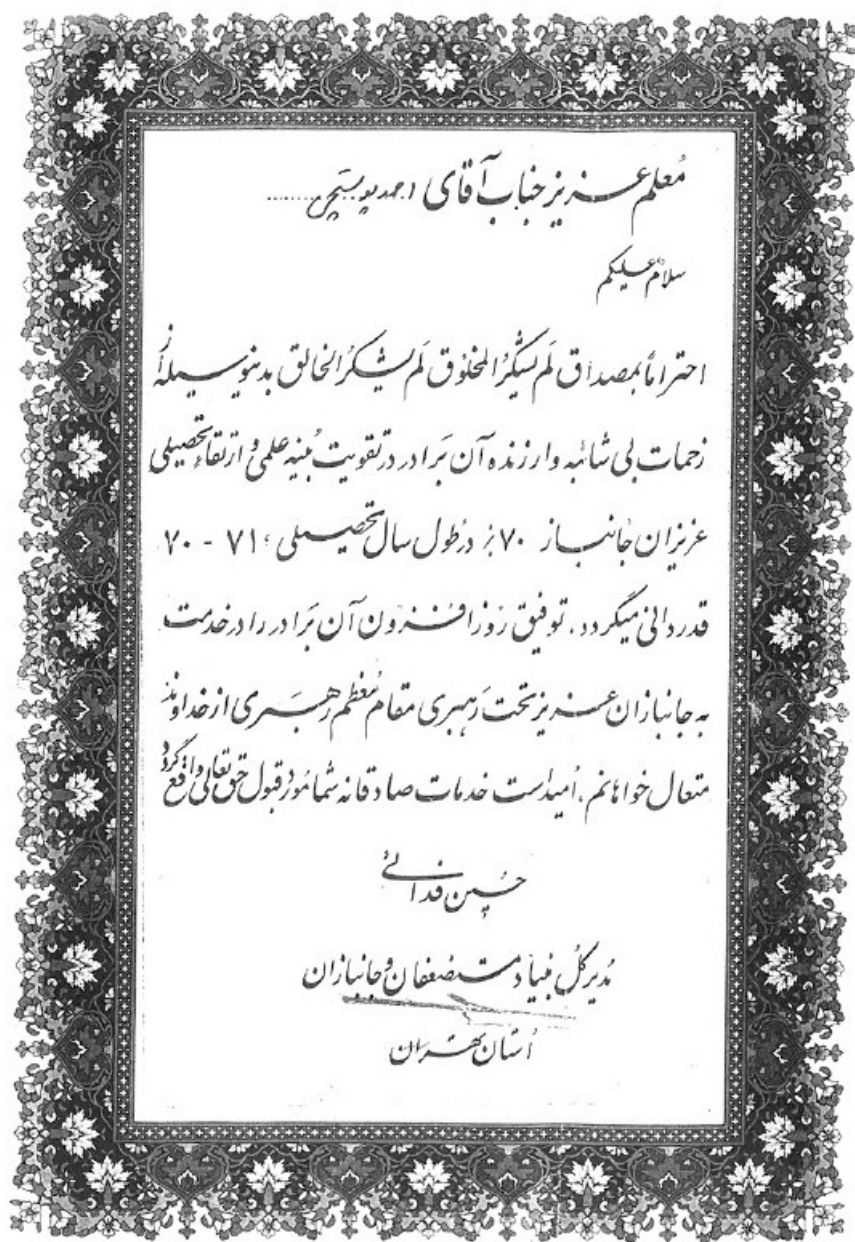 معلم عزیز جناب آقای احمد پوستچی ........
سلام علیکم
احتراماً بمصداق لم یشکر المخلوق لم یشکر الخالق بدینوسیله از
زحمات بی شائبه و ارزنده آن برادر در تقویت بنیه علمی و ارتقاء تحصیلی
عزیزان جانباز ۷۰٪ در طول سال تحصیلی ۷۱ - ۷۰
قدردانی میگردد. توفیق روزافزون آن برادر را در خدمت
به جانبازان عزیز تحت رهبری مقام معظم رهبری از خداوند
متعال خواهانم. امید است خدمات صادقانه شما مورد قبول حق تعالی واقع گردد
حسین فدائی
مدیر کل بنیاد مستضعفان و جانبازان
استان تهران